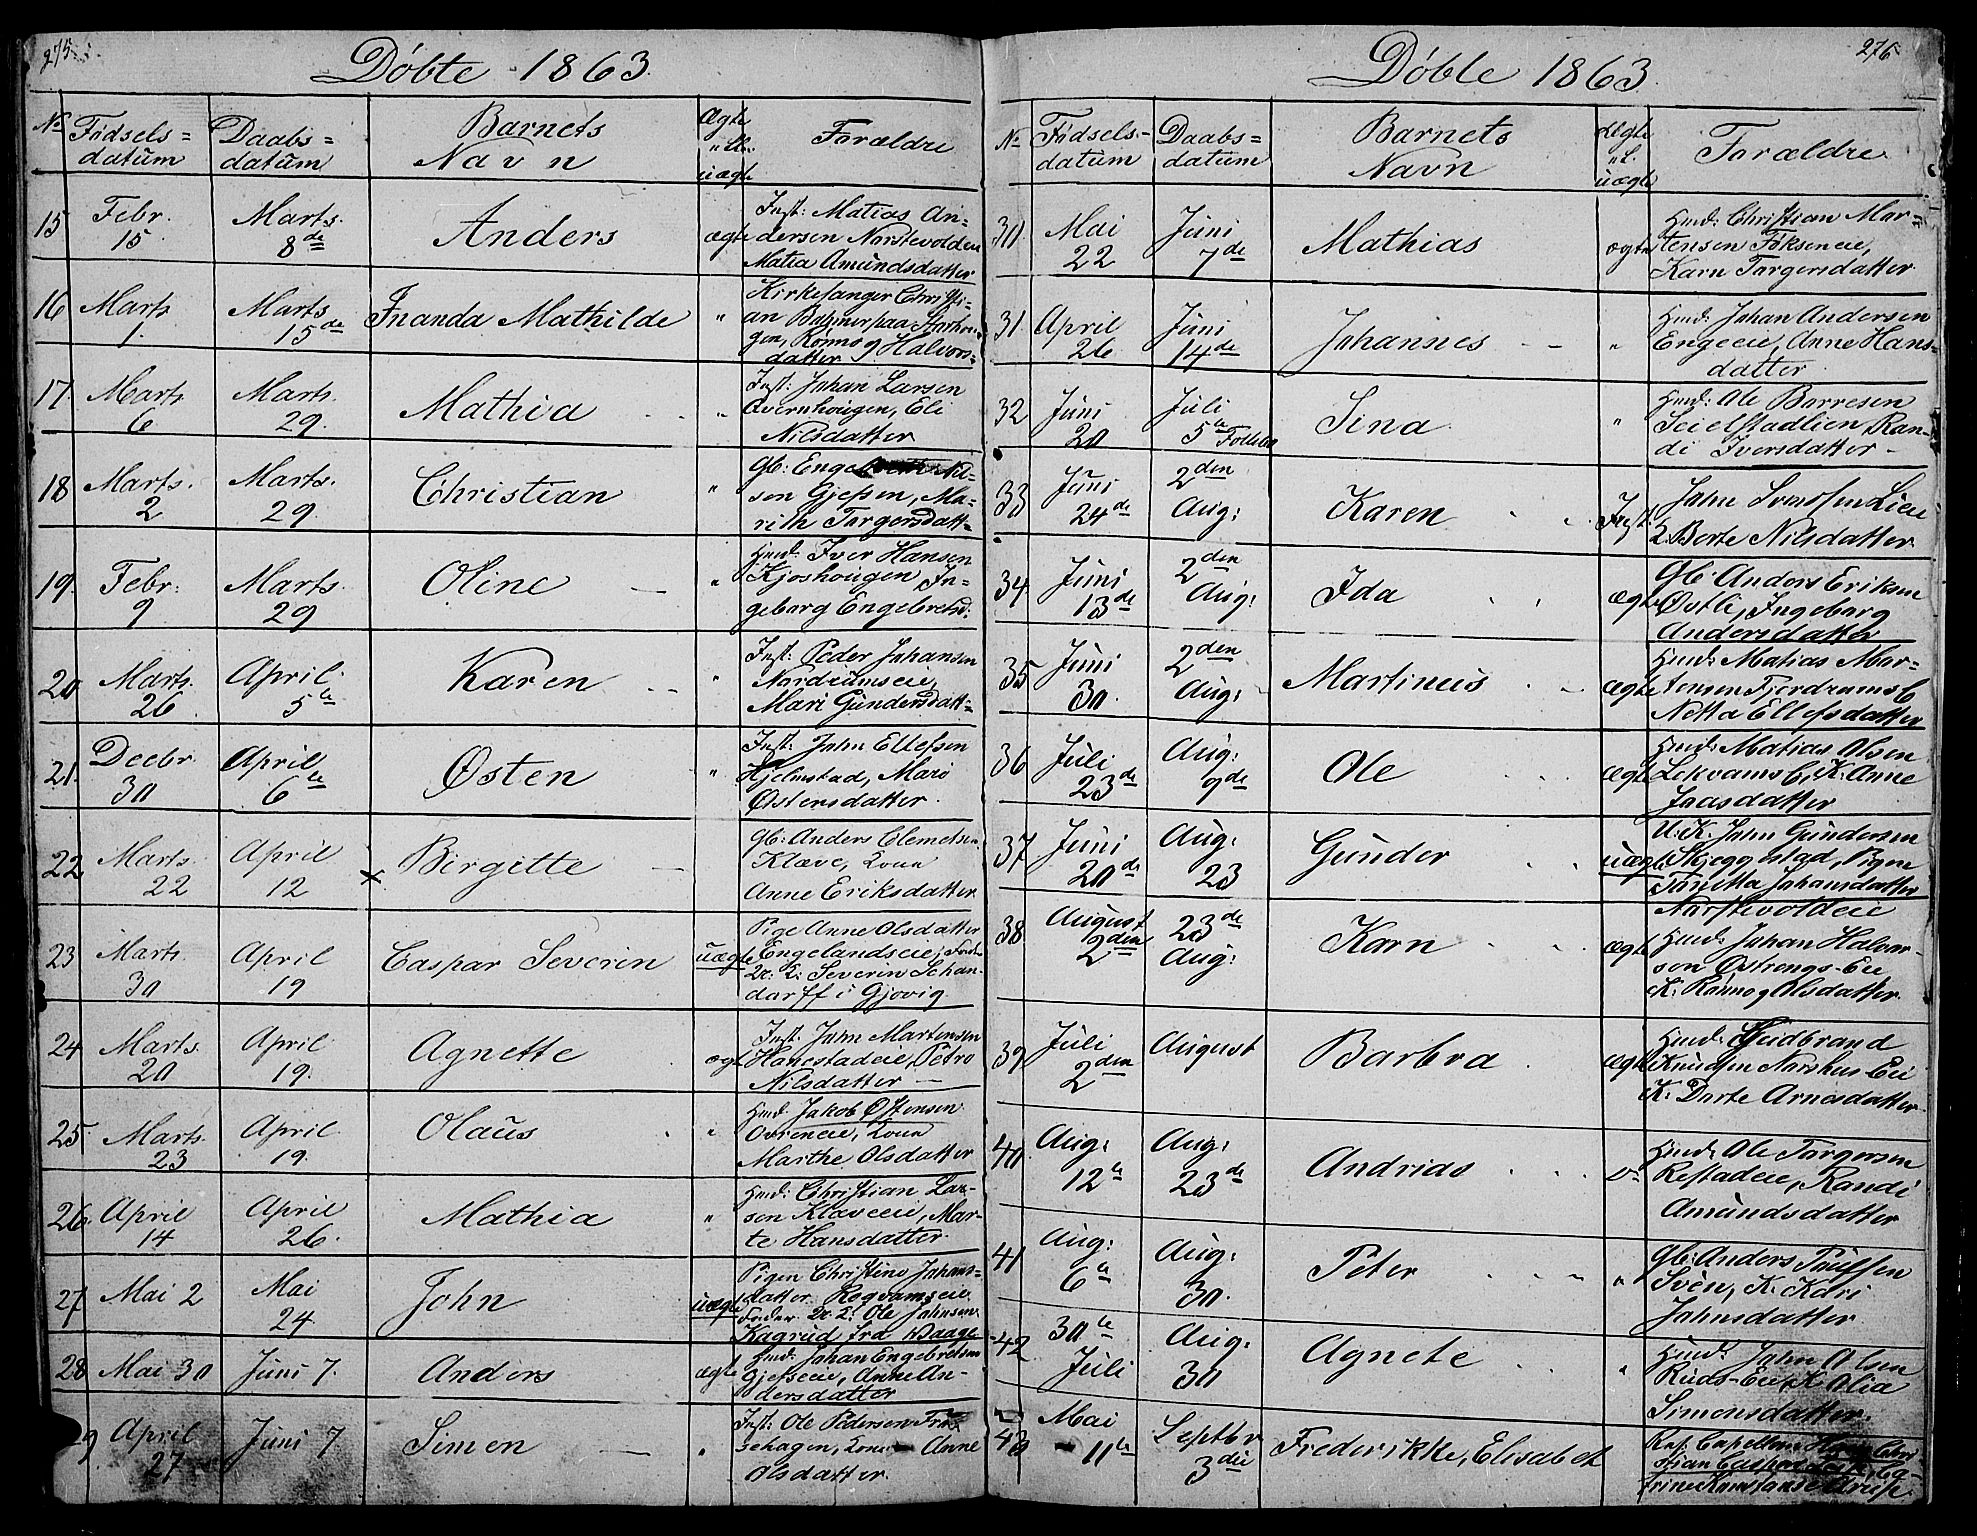 275
Døbte 1863.
No Fødsels= datum Daabs= datum Barnets Navn Ægte uægte Forældre
15 Febr. 15 Marts 8de Anders ægte Inst: Matias An=
dersen Narstevolden
Matea Amundsdatter
16 Marts 1. Marts 15de Inanda Mathilde " Kirkesanger Christi=
an
gen, Rønnog Halvors=
datter
17. Marts 6 Marts 29. Mathia " Inst: Johan Larsen
Overnhougen, Eli
Nilsdatter
18 Marts. 2 Marts. 29. Christian " Gb: Engebreth Nil=
sen Gjefsen, Ma=
rith Torgersdatt=
19. Febr: 9 Marts. 29 Oline — " Huusd: Iver Hansen
Kjoshougen, In=
geborg Engebretsd:
20 Marts. 26 April 5te Karen " Inst: Peder Johansen
Nordrumseie,
Mari Gundersdatt=
21. Decbr 30 April 6te Østen " Inst: John Ellefsen
Hjelmstad, Mari
Østensdatter.
22 Marts. 22 April 12 x Birgitte — Gb: Anders Clemetsen
Klæve, Kone
Anne Eriksdatter
23 Marts. 30 April 19 Caspar Severin uægte Pige Anne Olsdatter
Engelandseie,
Severin Schan-
darff i Gjøvig
24 Marts. 20 April 19. Agnette ægte Inst: John Martensen
Hanestadeie, Petro
Nilsdatter —
25. Marts. 23 April 19. Olaus " Huusd. Jakob Østensen
Ovreneie, Kone
Marthe Olsdatter
26. April 14 April 26. Mathia " Huusd: Christian Lar=
sen Klæveeie, Mar-
te Hansdatter.
27 Mai 2 Mai 24 John uægte Pigen Christine Johans=
datter Rogvamseie
Fader Ole Johnsen
Kagrud fra Vaage
28 Mai 30 Juni 7. Anders ægte Huusd: Johan Engebretsen
Gjefseie, Anne An-
dersdatter
29 April 27 Juni 7. Simen — " Inst: Ole Pedersen
Kone Anne
Olsdatter.
276
Døbte 1863.
No Fødsels- datum Daabs= datum Barnets Navn Ægte uægte Forældre
30. Mai 22 Juni 7de Mathias ægte Huusd: Christian Mar=
tensen Fokseneie,
Karn Torgersdatter
31 April 26 Juni 14de Johannes — " Huusd: Johan Andersen
Engeeie, Anne Hans=
datter
32 Juni 20 Juli 5te Sina " Huusd: Ole Børresen
Seielstadlien, Ran=
di Iversdatter —
33 Juni 24de 2den Aug: Karen Inst: John Svendsen Lieie
Berte Nilsdatter
34 Juni 13de 2den Aug: Ida ægte Gb: Anders Eriksen
Østli, Ingeborg
Andersdatter
35 Juni 30. 2den Aug: Martineus ægte Huusd: Matias Mar=
tensen Fjerdrums
Netta Ellefsdatter
36 Juli 23de Aug: 9de Ole ægte Huusd: Matias Olsen
Lekvams K. Anne
Joasdatter
37 Juni 20de Aug: 23 Gunder uægte U.K. John Gundersen
Skjeggestad, Pigen
Tonetta Johansdatter
Narstevoldeie
38 August 2den 23de Aug: Karn ægte Huusd: Johan Halvor-
son Østrengs-Eie
K: Rønnog Olsdatter
39 Juli 2den August Barbra ægte Huusd: Gudbrand
Knudsen Narshus Eie
K: Dorte Arnesdatter
40 Aug: 12te Aug: 23de Andrias do Huusd: Ole Torgersen
Restadeie, Randi
Amundsdatter
41 Aug: 6te Aug: 30. Peter " Gb: Anders Poulsen
Sveen, K. Kari
Johnsdatter.
42 30te Juli Aug: 30 Agnete " Huusd: John Olsen
Ruds-Eie, K. Olia
Simonsdatter.
43 Mai 11te Septbr 3die Frederikke, Elisabet Res: Capellan Hans Chri
stian